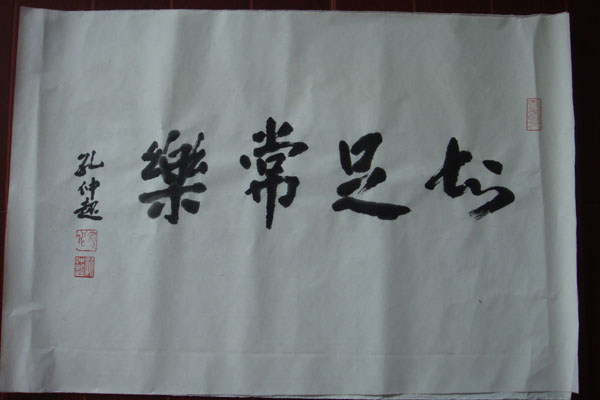 知足常樂
孔仲起